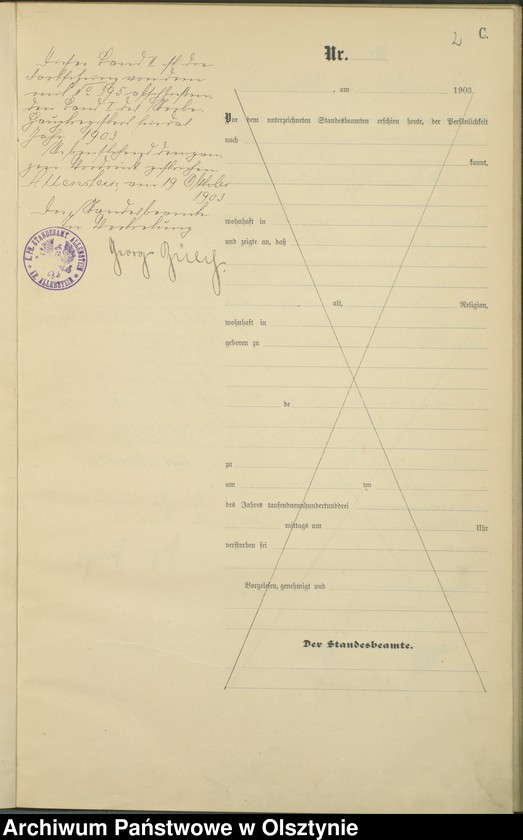 2
C.
Dieser Band II ist die
Fortsetzung von dem
mit No 395 abschließen
den Band I des Sterbe
Hauptregisters für das
Jahr 1903
Vordruck gestrichen
Allenstein, am 19 Oktober
1903
Der Standesbeamte
In Vertretung
Georg
K. PR. STANDESAMT ALLENSTEIN
KR. ALLENSTEIN
Nr.
, am 1903.
Vor dem unterzeichneten Standesbeamten erschien heute, der Persönlichkeit
nach
kannt,
wohnhaft in
und zeigte an, daß
alt, Religion,
wohnhaft in
geboren zu
de
zu
am ten
des Jahres tausendneunhundertunddrei
mittags um Uhr
verstorben sei
Vorgelesen, genehmigt und
Der Standesbeamte.
Archiwum Państwowe w Olsztynie